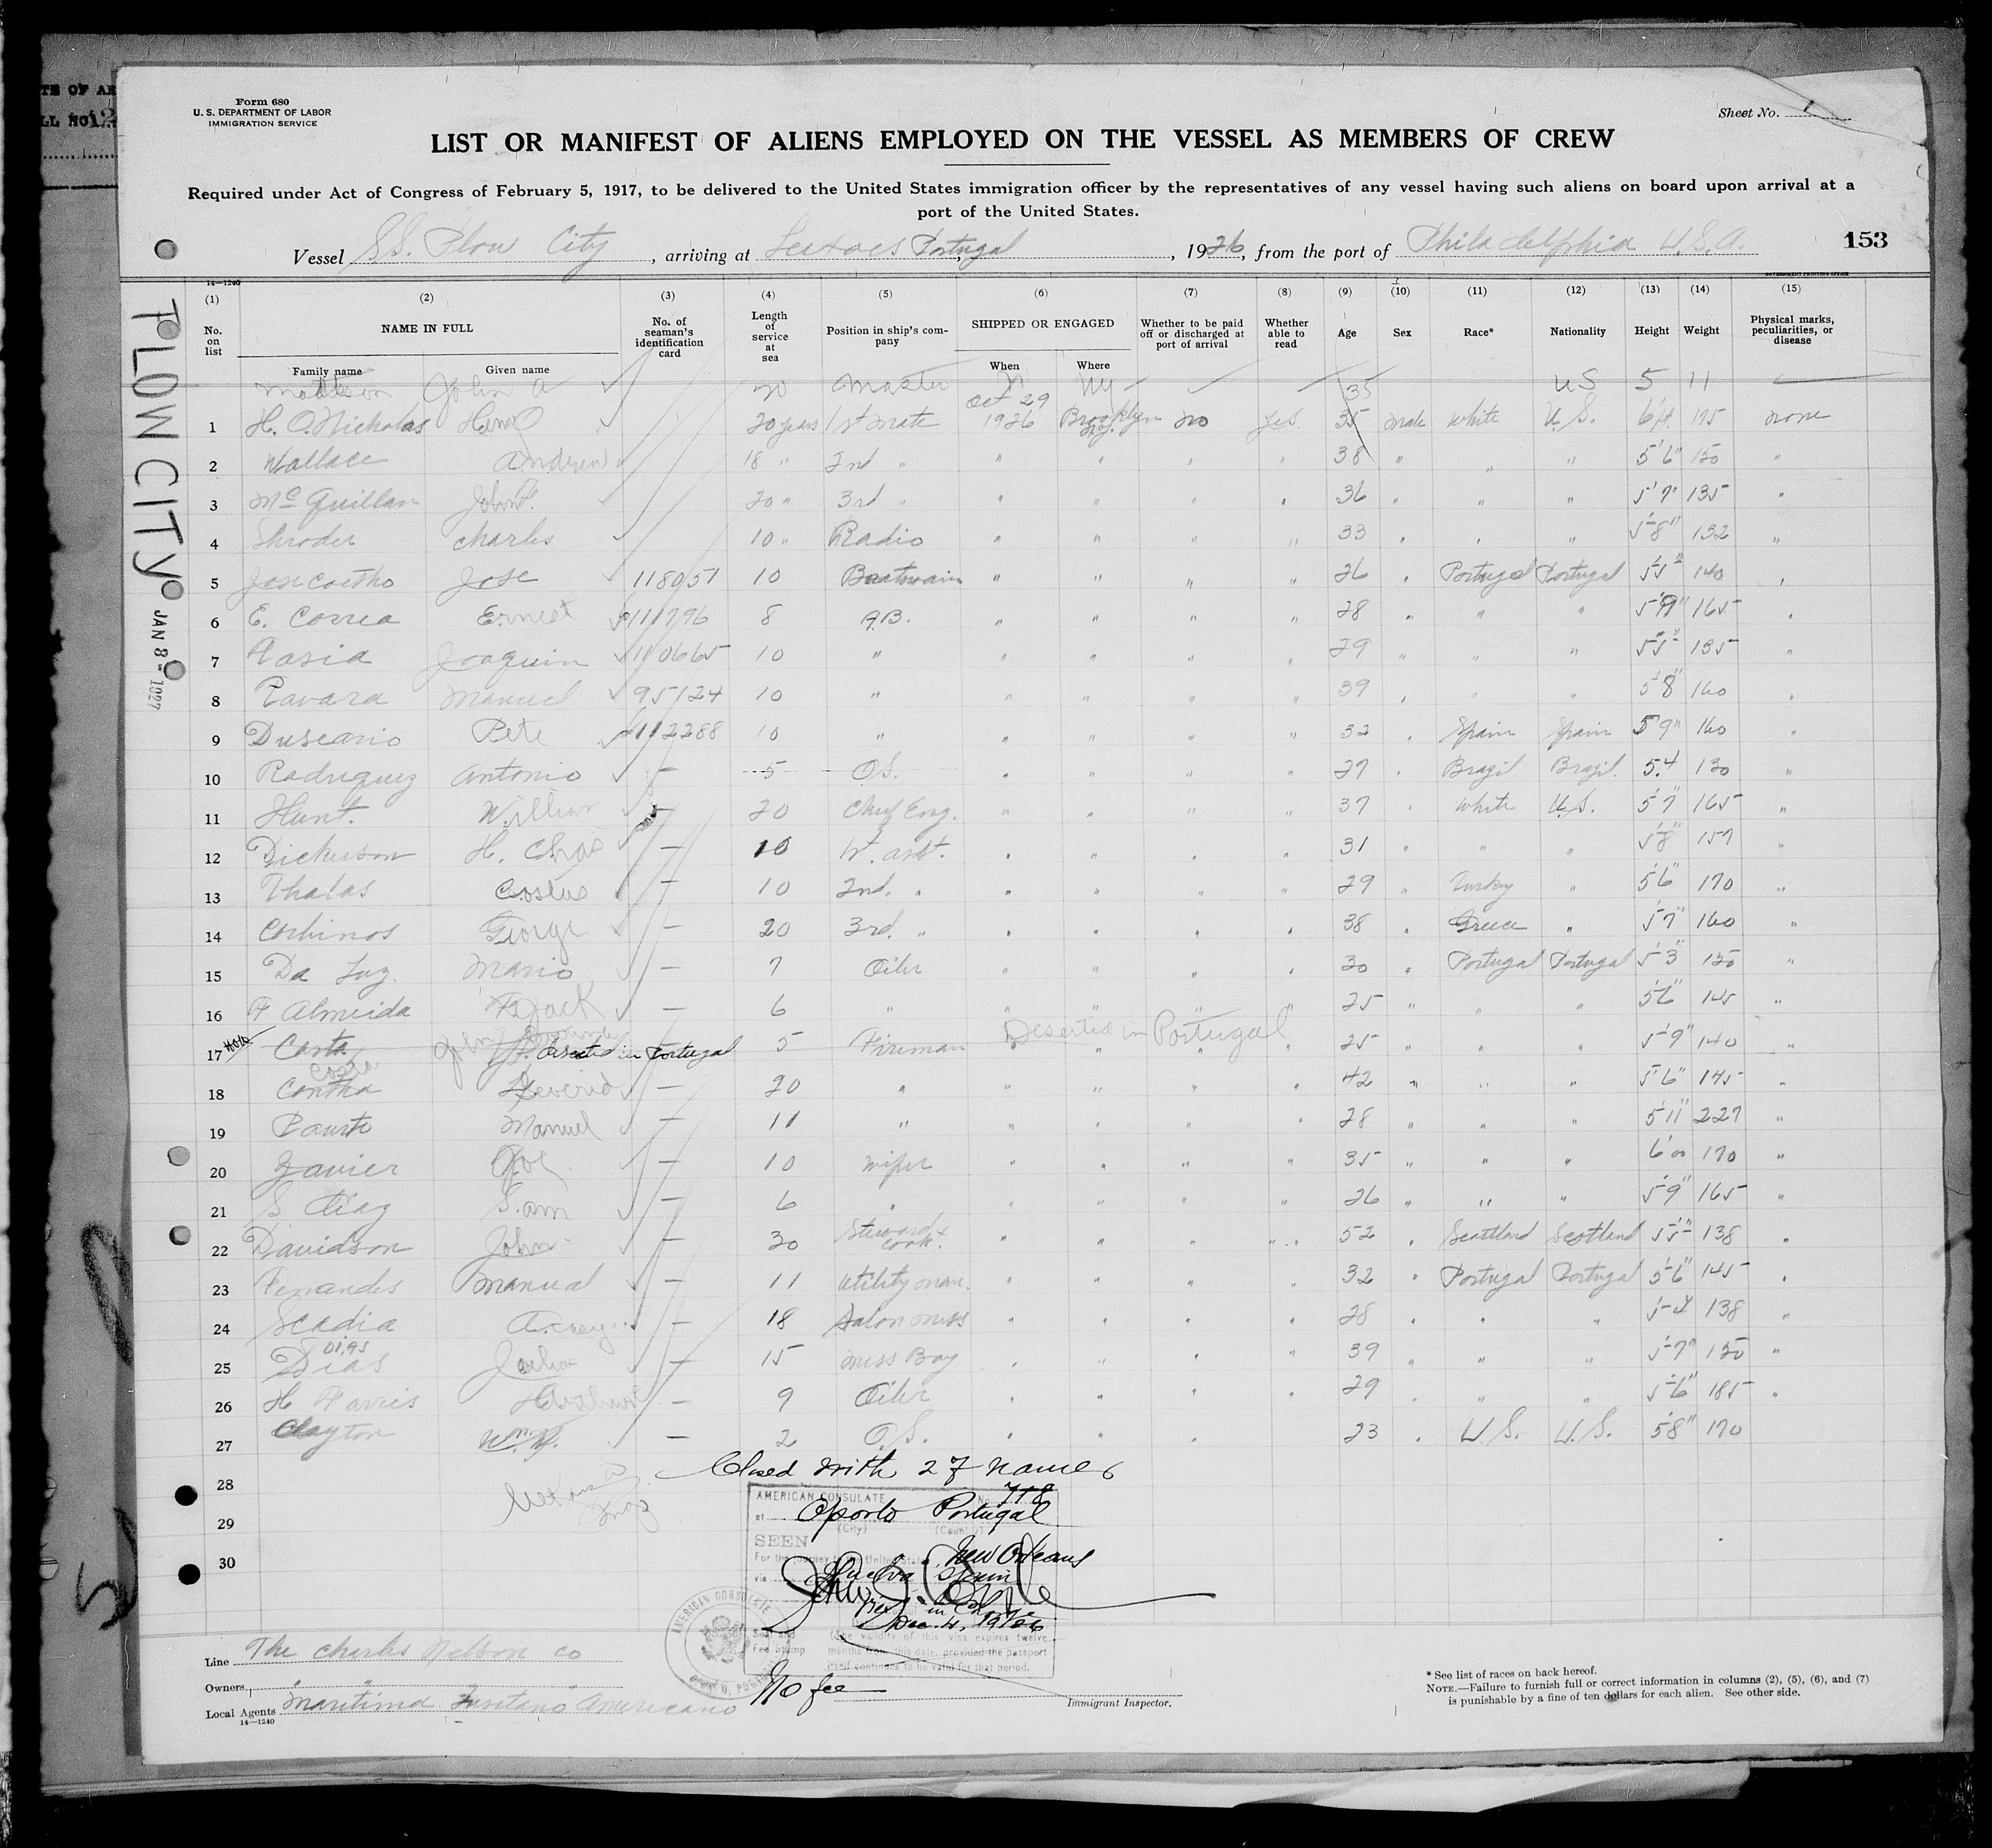 TE OF AR
LL NO. 12
Form 680
U. S. DEPARTMENT OF LABOR
IMMIGRATION SERVICE
Sheet No. 1
LIST OR MANIFEST OF ALIENS EMPLOYED ON THE VESSEL AS MEMBERS OF CREW
Required under Act of Congress of February 5, 1917, to be delivered to the United States immigration officer by the representatives of any vessel having such aliens on board upon arrival at a
port of the United States.
Vessel SS. Plow City, arriving at Leixoes Portugal, 1926, from the port of Philadelphia U.S.A. 153
14—1240 GOVERNMENT PRINTING OFFICE
PLOW CITY
JAN 8 - 1927
(1) (2) (3) (4) (5) (6) (7) (8) (9) (10) (11) (12) (13) (14) (15)
No. on list NAME IN FULL No. of seaman's identification card Length of service at sea Position in ship's company SHIPPED OR ENGAGED Whether to be paid off or discharged at port of arrival Whether able to read Age Sex Race* Nationality Height Weight Physical marks, peculiarities, or disease
Family name Given name When Where
Mattson John A 20 Master NY 35 US 5 11
1 H. O. Nicholas Henry 20 years 1st mate Oct 29 1926 Brooklyn N.Y. no yes 35 male white U.S. 6 ft. 175 none
2 Wallace Andrew 18 " 2nd " " " " " 38 " " " 5'6" 150 "
3 McQuillan John P. 20 " 3rd " " " " " 36 " " " 5'7" 135 "
4 Shroder Charles 10 " Radio " " " " 33 " " " 5'8" 132 "
5 Jose Coetho Jose 118051 10 Boatswain " " " " 26 " Portugal Portugal 5'5" 140 "
6 E. Correa Ernest 111796 8 A.B. " " " " 28 " " " 5'9" 165 "
7 Faria Joaquin 110665 10 " " " " " 29 " " " 5'5" 135 "
8 Ravara Manuel 95124 10 " " " " " 39 " " " 5'8" 160 "
9 Duseario Pete 112288 10 " " " " " 32 " Spain Spain 5'9" 160 "
10 Radriguez Antonio — 5 O.S. " " " " 27 " Brazil Brazil 5.4 130 "
11 Hunt. William 20 Chief Eng. " " " " 37 " White U.S. 5'7" 165 "
12 Dickerson H. Chas — 10 1st. asst. " " " " 31 " " " 5'8" 157 "
13 Thalas Costus — 10 2nd. " " " " " 29 " Turkey " 5'6" 170 "
14 Corbinos George — 20 3rd. " " " " " 38 " Greece " 5'7" 160 "
15 Da Luz. Mario — 7 Oiler " " " " 30 " Portugal Portugal 5'3" 150 "
16 F Almeida Jack — 6 " " " " " 25 " " " 5'6" 145 "
17 Costa John deserted in Portugal 5 Fireman Deserted in Portugal 25 " " " 5'9" 140 "
Costa
18 Contha — 20 " " " " " 42 " " " 5'6" 145 "
19 Pausto Manuel — 11 " " " " " 28 " " " 5'11" 227 "
20 Zavier Joe — 10 wiper " " " " 35 " " " 6'00 170 "
21 S Diaz Sam — 6 " " " " " 26 " " " 5'9" 165 "
22 Davidson John — 30 Steward & cook. " " " " 52 " Scottland Scotland 5'5" 138 "
23 Fernandes Manual — 11 Utility man. " " " " 32 " Portugal Portugal 5'6" 145 "
24 Scadia — 18 Salon mess " " " " 28 " " " 5'4 138 "
DIAS
25 Dias — 15 Mess Boy " " " " 39 " " " 5'7" 150 "
26 H Farris Arthur — 9 Oiler " " " " 29 " " " 5'6" 185 "
27 Clayton Wm. — 2 O.S. " " " 23 " U.S. U.S. 5'8" 170
Closed with 27 names
28
29
30
AMERICAN CONSULATE No. 718
at Oporto Portugal
(City) (Country)
SEEN
For the journey to the United States New Orleans
via Huelva Spain
Dec. 4, 1926
(The validity of this visa expires twelve
months from this date, provided the passport
itself continues to be valid for that period.
Seal and
Fee Stamp
AMERICAN CONSULATE
OPORTO, PORTUGAL
No fee
Line The Charles Nelson Co
Owners " " "
Local Agents Maritima Lusitano Americano
14—1240
Immigrant Inspector.
* See list of races on back hereof.
NOTE.—Failure to furnish full or correct information in columns (2), (5), (6), and (7)
is punishable by a fine of ten dollars for each alien. See other side.